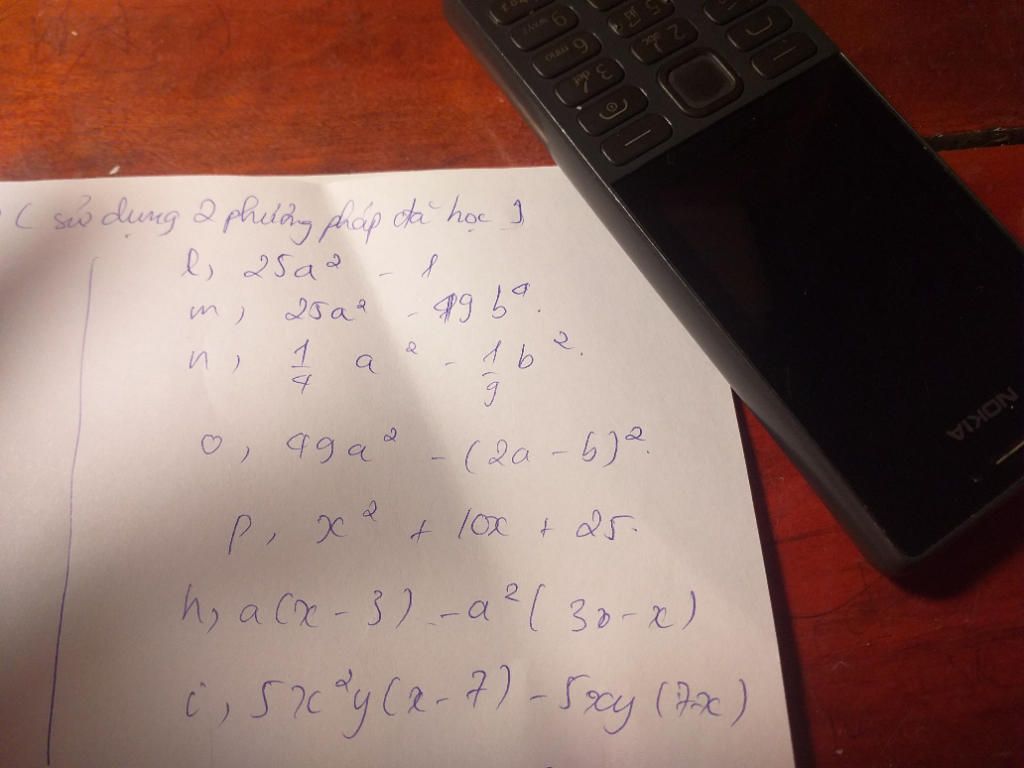 ( sử dụng 2 phương pháp đã học )
l, 25a² - 1
m, 25a² - 49b⁴.
n, 1/4 a² - 1/9 b².
o, 49a² - (2a - b)².
p, x² + 10x + 25.
h, a(x - 3) - a²( - x)
i, 5x²y(x - 7) - 5xy (7-x)
NOKIA